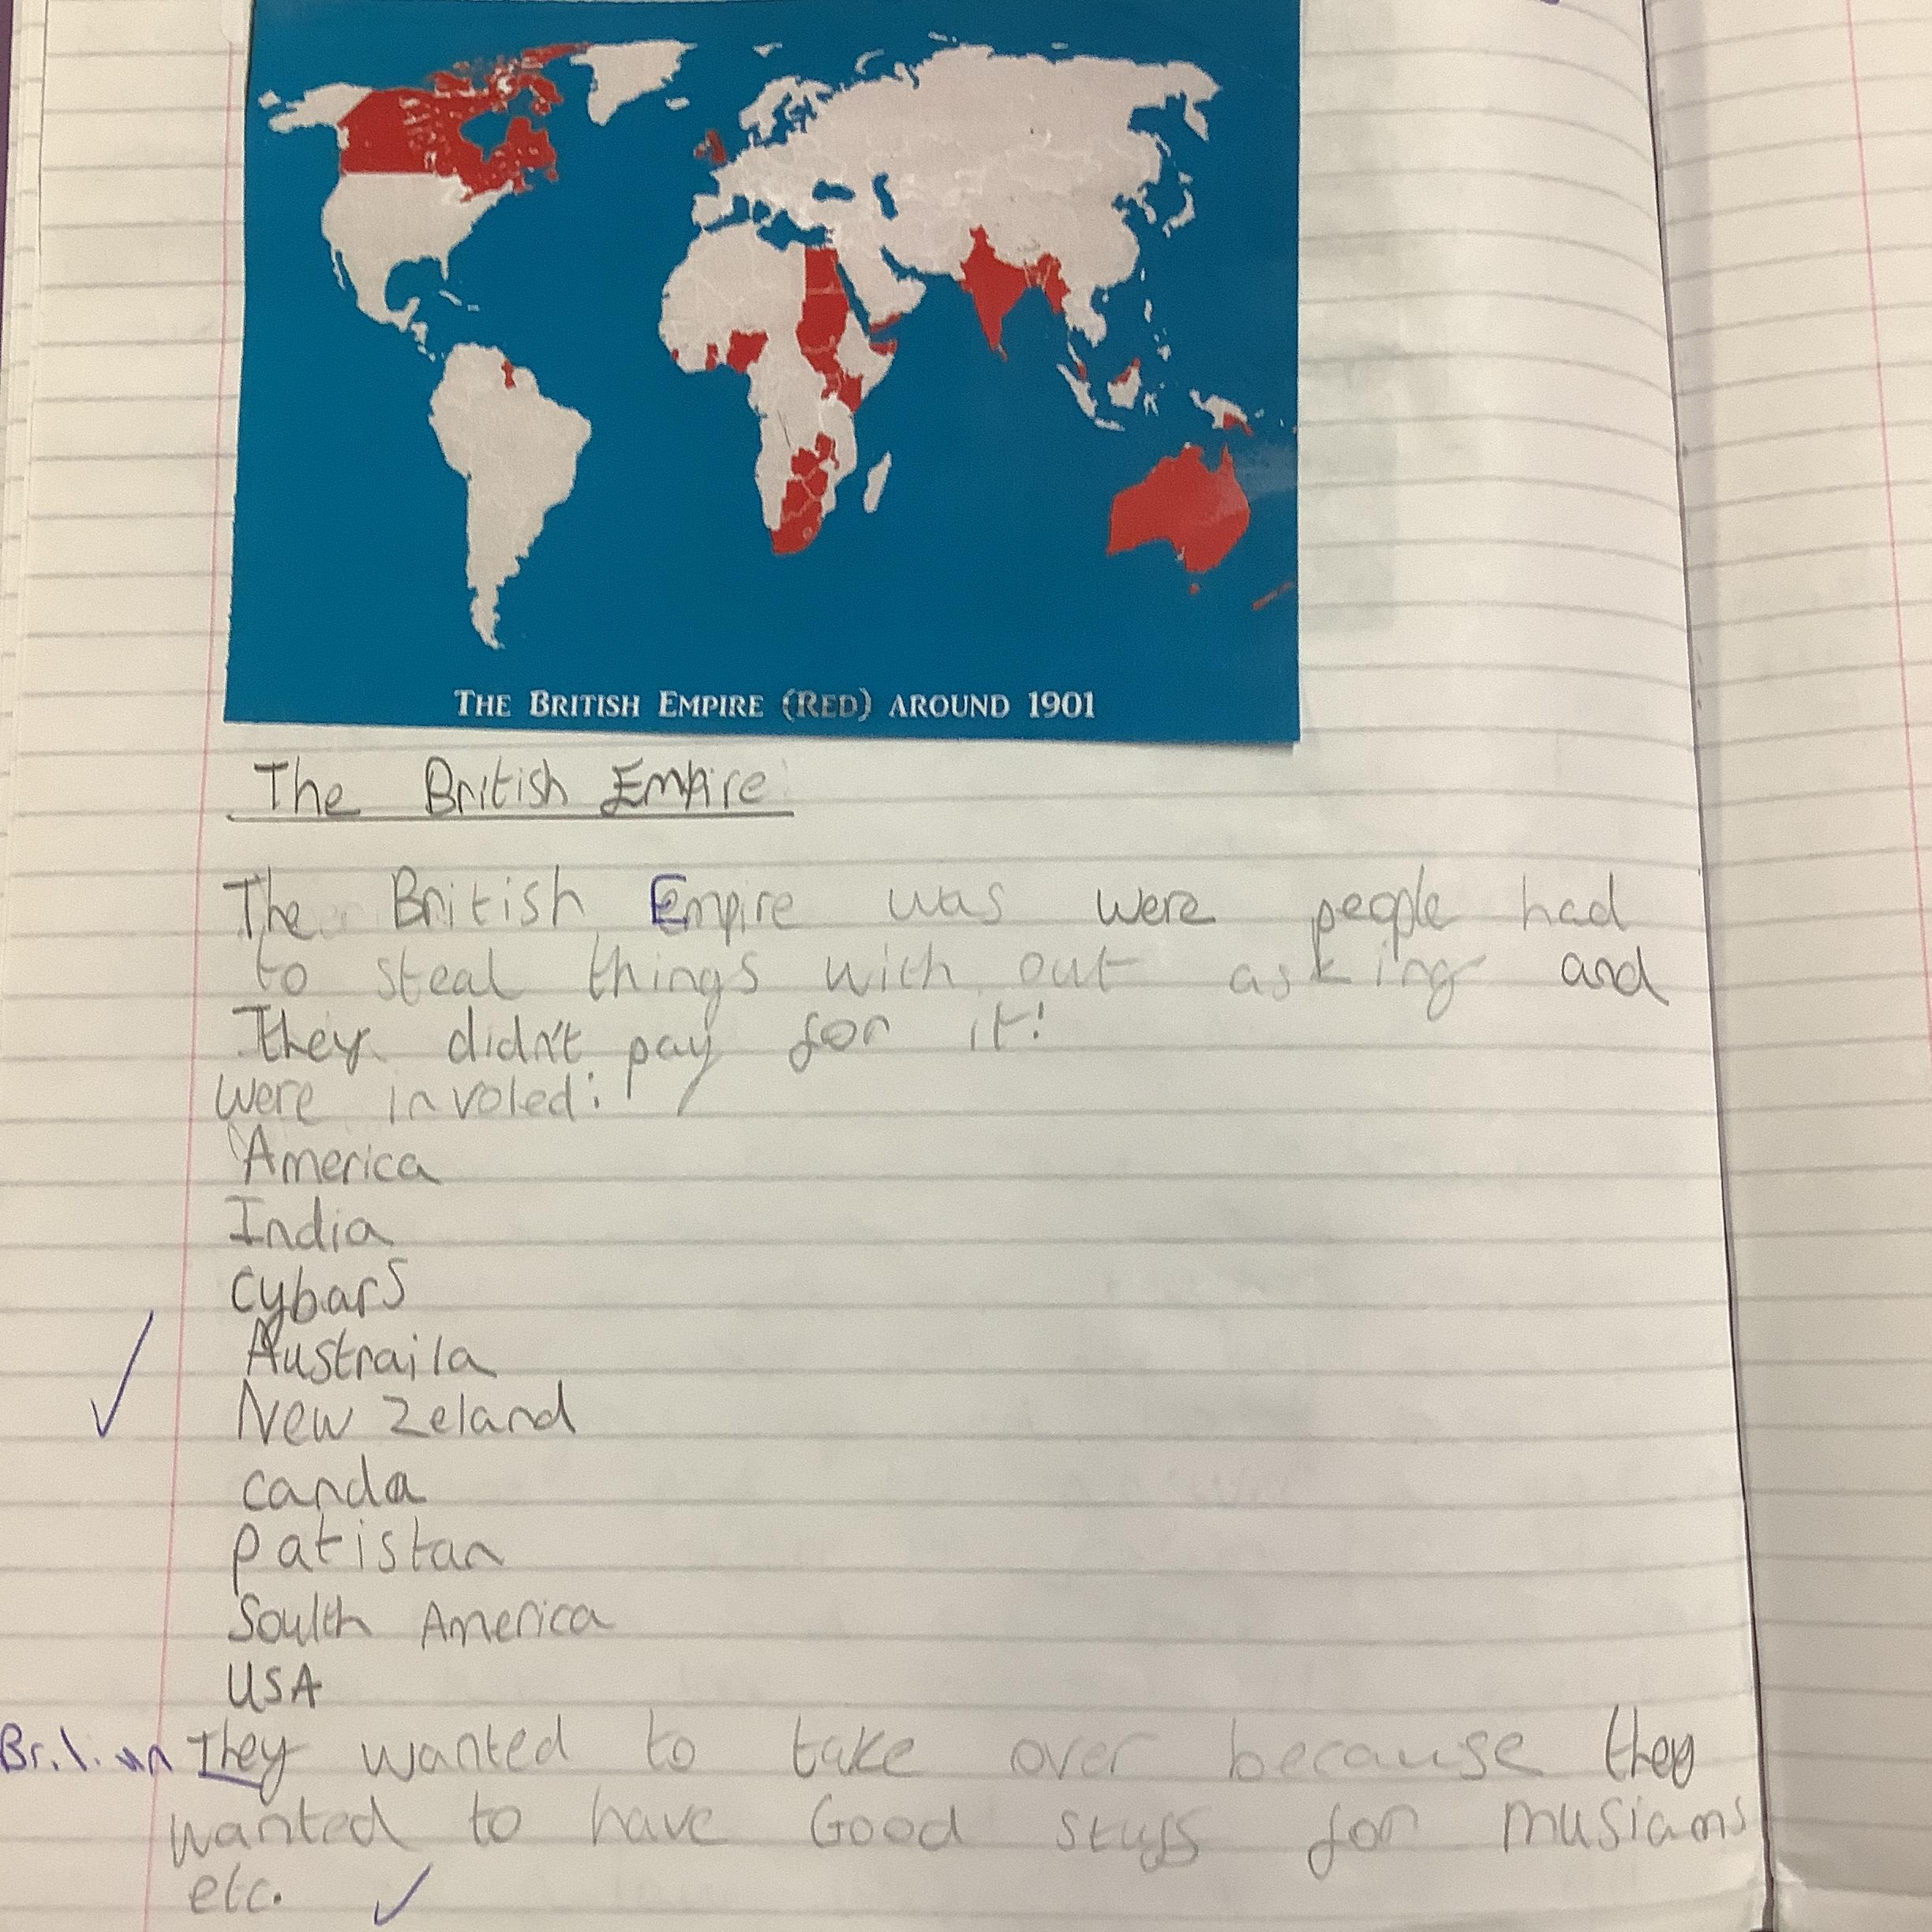 THE BRITISH EMPIRE (RED) AROUND 1901
The British Empire
The British Empire was were people had
to steal things with out asking and
They didn't pay for it!
were involed:
America
India
Cybars
Austraila
New Zeland
canda
patistan
Soulth America
USA
They wanted to take over because they
wanted to have Good stuff for musiams
etc.